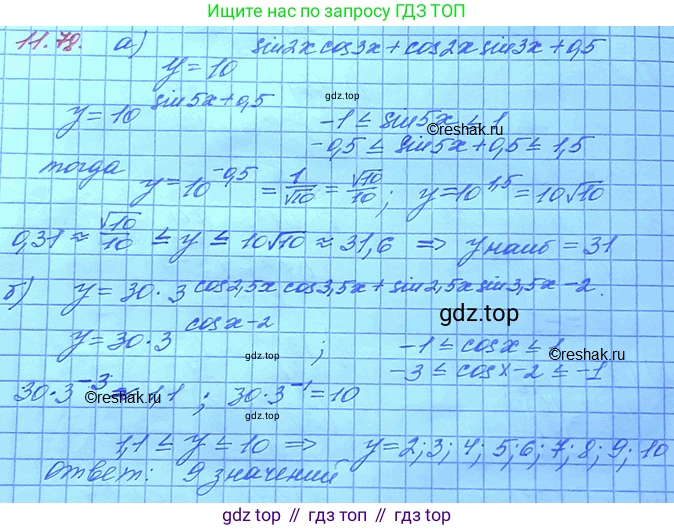 Ищите по запросу ГДЗ ТОП
11.78. а) y = 10^(sin2x cos3x + cos2x sin3x + 0,5)
y = 10^(sin5x + 0,5) -1 ≤ sin5x ≤ 1
gdz.top
©reshak.ru
-0,5 ≤ sin5x + 0,5 ≤ 1,5
тогда y = 10^(-0,5) = 1/√10 = √10/10; y = 10^(1,5) = 10√10
gdz.top
0,31 ≈ √10/10 ≤ y ≤ 10√10 ≈ 31,6 ⇒ y наиб = 31
б) y = 30·3^(cos2,5x cos3,5x + sin2,5x sin3,5x - 2).
gdz.top
y = 30·3^(cosx - 2); -1 ≤ cosx ≤ 1
gdz.top
©reshak.ru
-3 ≤ cosx - 2 ≤ -1
30·3^(-3) ≈ 1,1; 30·3^(-1) = 10
©reshak.ru
1,1 ≤ y ≤ 10 ⇒ y = 2; 3; 4; 5; 6; 7; 8; 9; 10
ответ: 9 значений
gdz.top
gdz.top // гдз.топ // gdz.top